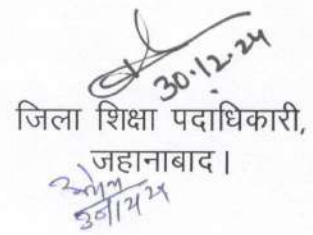 30.12.24
जिला शिक्षा पदाधिकारी,
जहानाबाद।